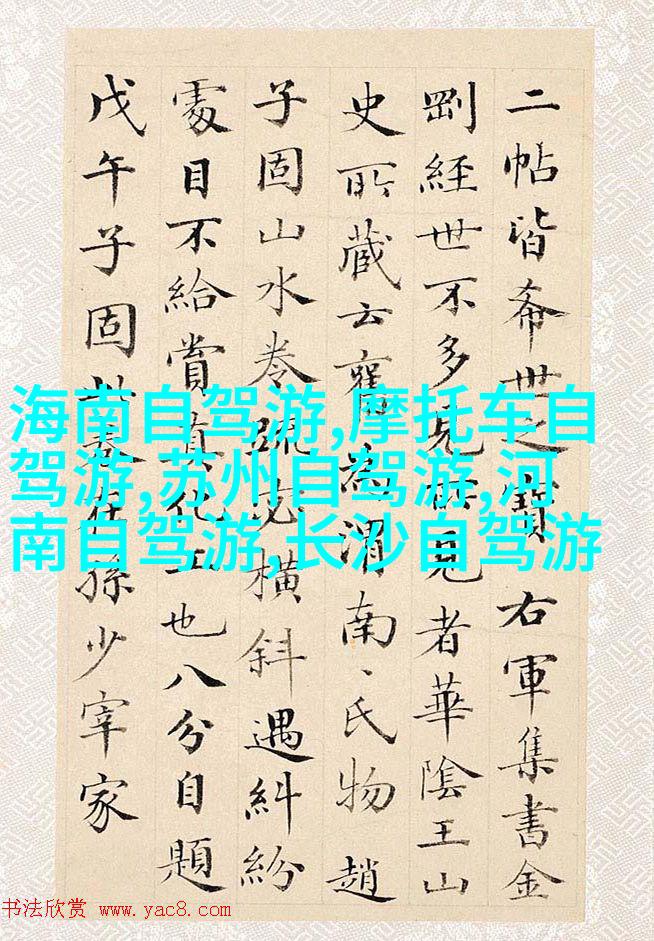 二帖皆希世之寶 右軍集書金
剛經世不多見所見者華陰王山
史所藏云舊為渭南、氏物 趙
子固山水卷疏橫斜遇糾紛
處目不給賞真化工也八分自題
戊午子固此卷在孫少宰家
海南自驾游,摩托车自
驾游,苏州自驾游,河
南自驾游,长沙自驾游
书法欣赏 www.yac8.com